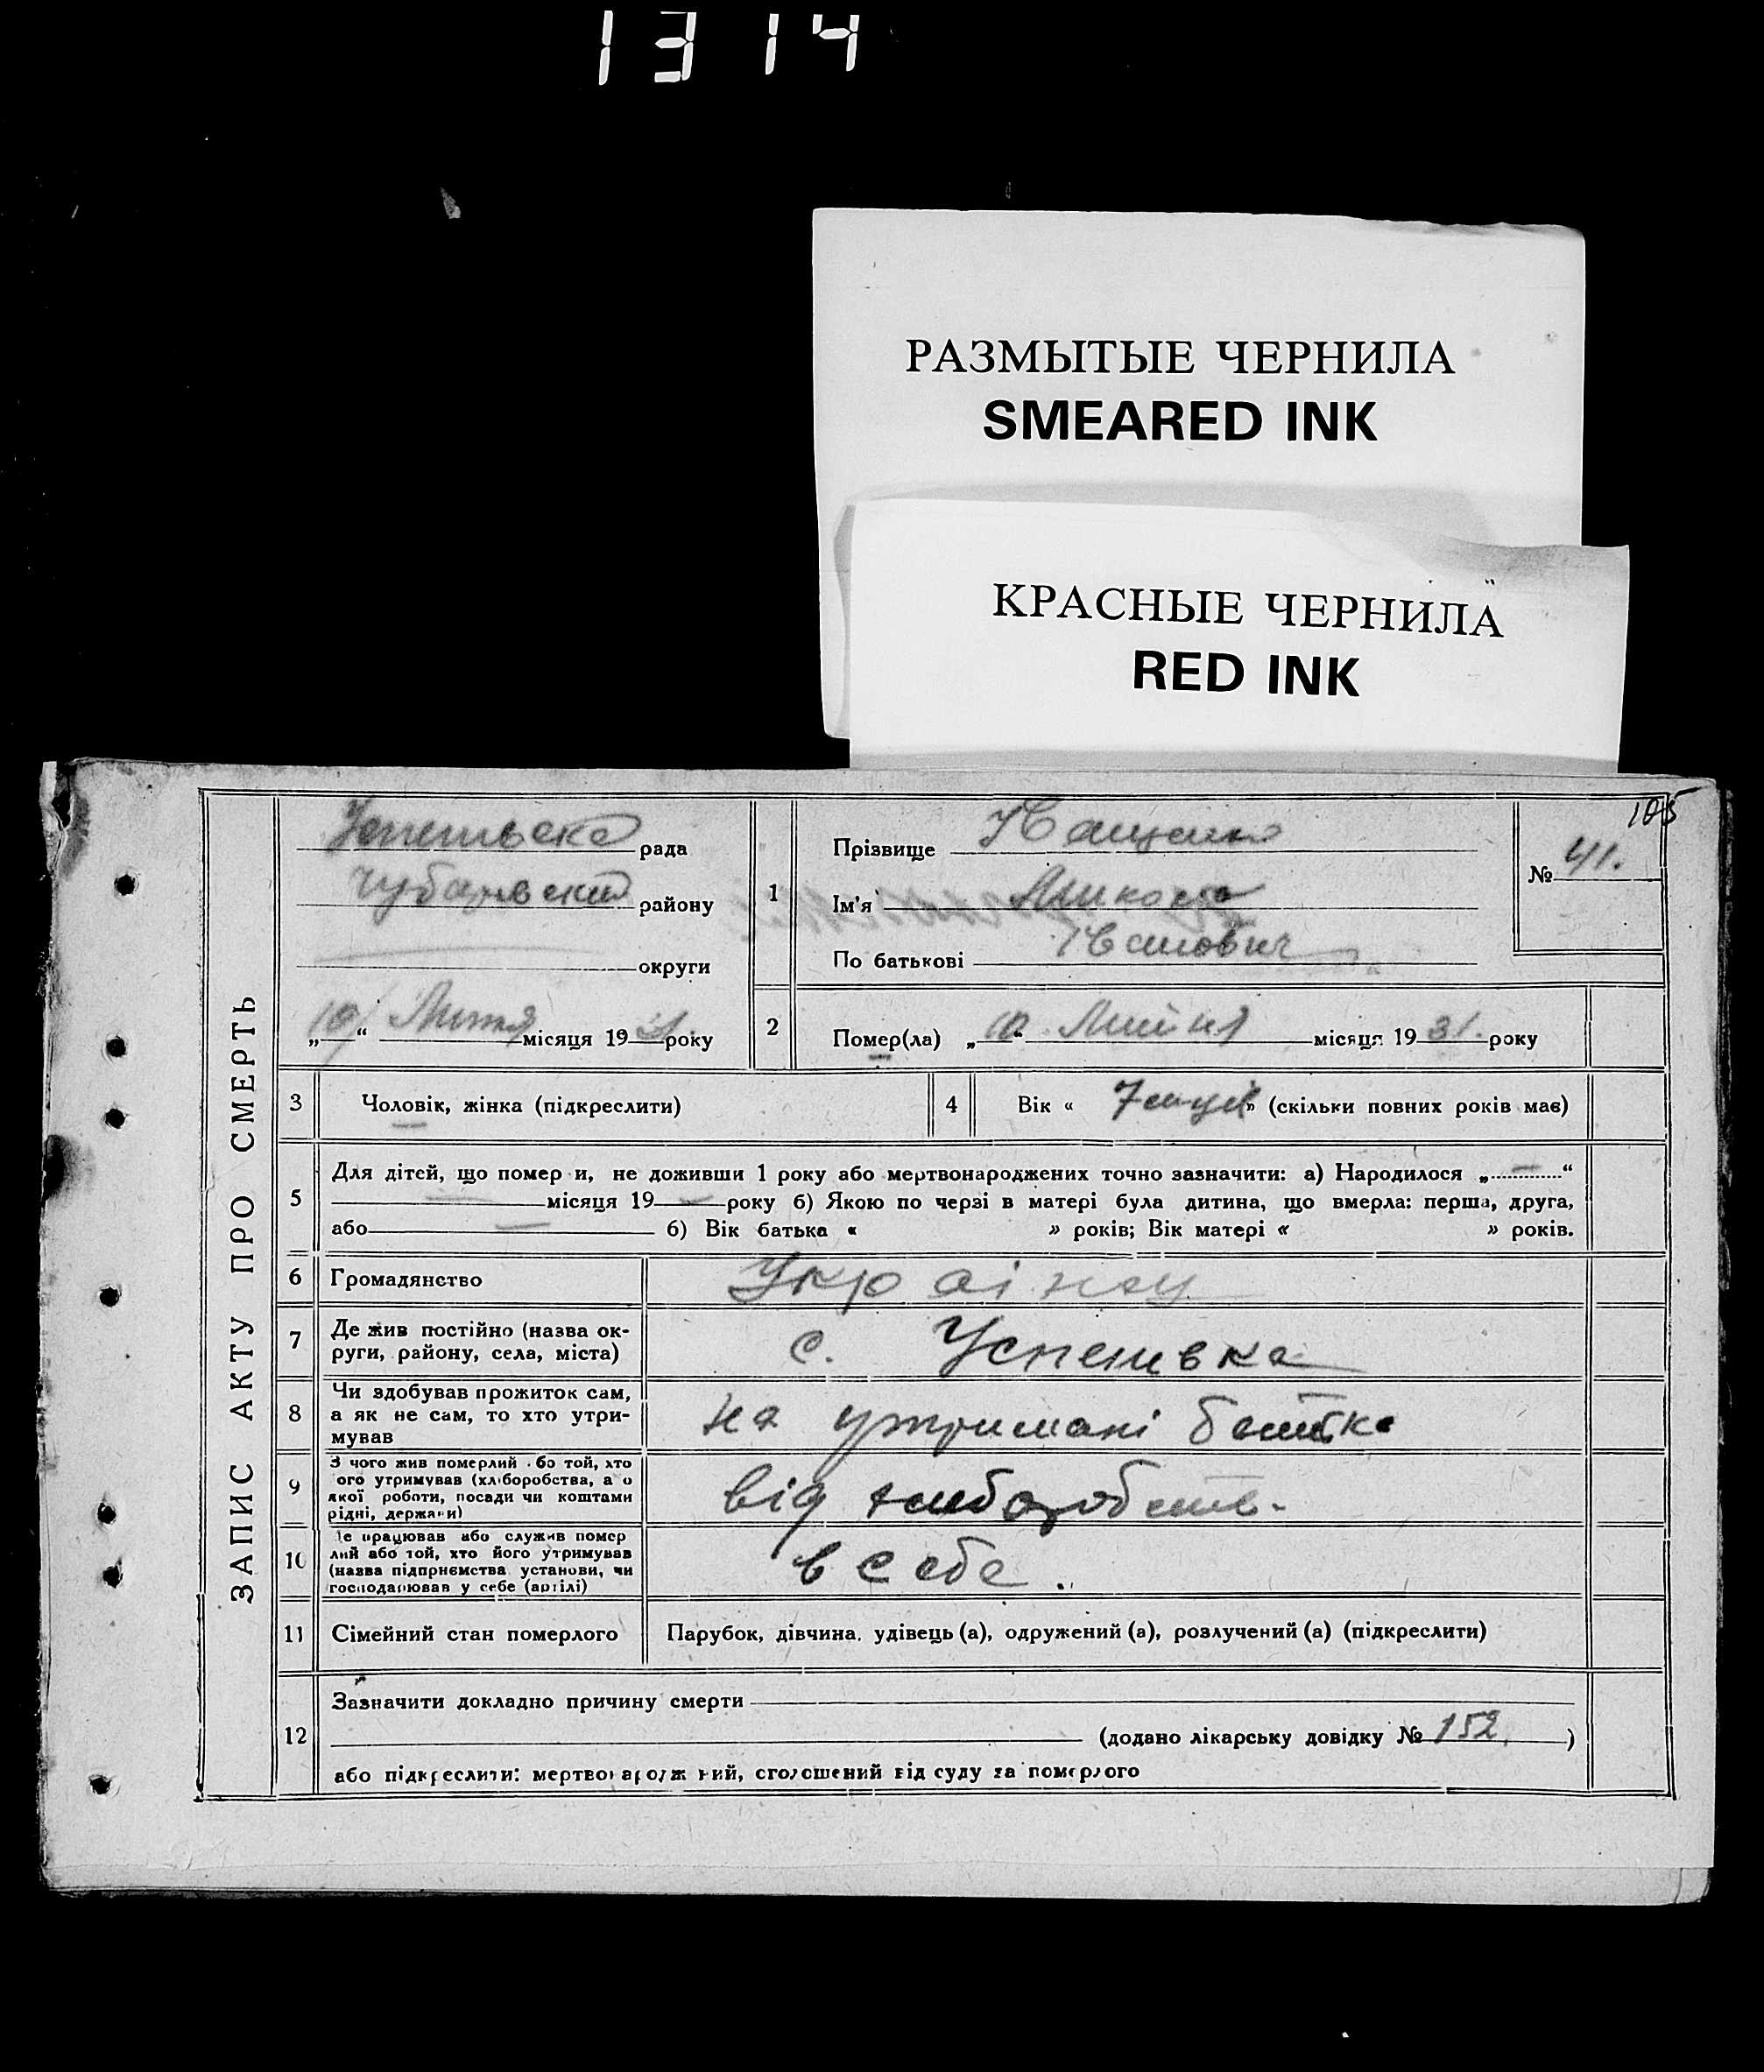 1314
РАЗМЫТЫЕ ЧЕРНИЛА
SMEARED INK
КРАСНЫЕ ЧЕРНИЛА
RED INK
105
ЗАПИС АКТУ ПРО СМЕРТЬ
рада
Чубарівський району
округи
„10“ місяця 1931 року
1
Прізвище Іващенко
Ім'я Микола
По батькові Іванович
№ 41.
2
Помер(ла) „10“ місяця 1931. року
3
Чоловік, жінка (підкреслити)
4
Вік « 7 » (скільки повних років має)
5
Для дітей, що помер и, не доживши 1 року або мертвонароджених точно зазначити: а) Народилося „ — “
— місяця 19 — року б) Якою по черзі в матері була дитина, що вмерла: перша, друга,
або — б) Вік батька « » років; Вік матері « » років.
6
Громадянство
7
Де жив постійно (назва ок-
руги, району, села, міста)
с. Успенівка
8
Чи здобував прожиток сам,
а як не сам, то хто утри-
мував
на утримані батька
9
З чого жив померлий бо той, хто
ого утримував (хліборобства, а о
якої роботи, посади чи коштами
рідні, держави)
від хліборобств.
10
е працював або служив помер
лий або той, хто його утримував
(назва підприємства установи, чи
господарював у себе (артілі)
в себе.
11
Сімейний стан померлого
Парубок, дівчина, удівець (а), одружений (а), розлучений (а) (підкреслити)
12
Зазначити докладно причину смерти
(додано лікарську довідку № 152. )
або підкреслити: мертвонароджений, оголошений від суду за померлого